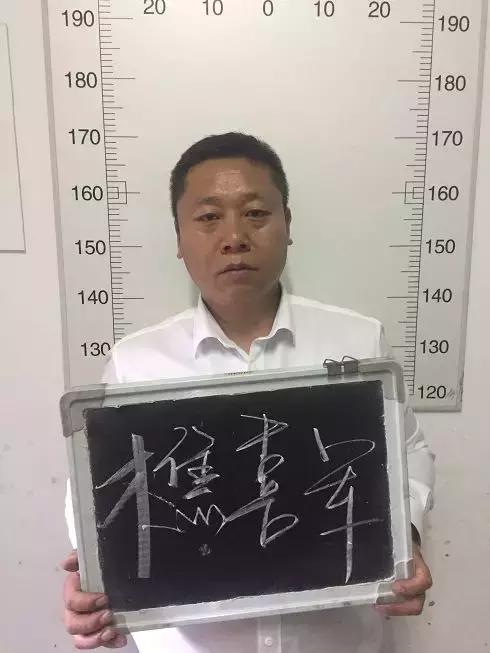 20 10 0 10 20
190 190
180 180
170 170
160 160
150 150
140 140
130 130
120
樵喜军